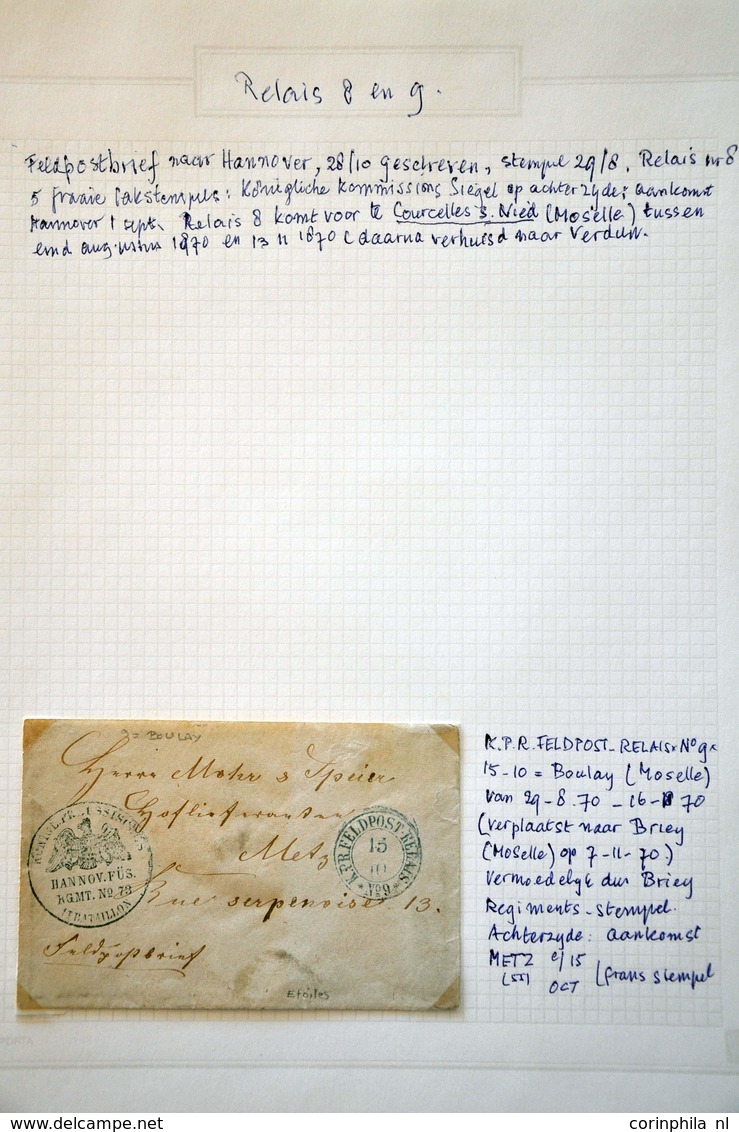 Relais 8 en 9.
Feldpostbrief naar Hannover, 28/10 geschreven, stempel 29/8. Relais nr 8
5 fraaie lakstempels: Königliche Kommissions Siegel op achterzyde; aankomst
Hannover 1 sept. Relais 8 komt voor te Courcelles s. Nied (Moselle) tussen
eind augustus 1970 en 13 11 1870 (daarna verhuisd naar Verdun.
9 = BOULAY
Herrn Mohr & Speier
Hoflieferanten
Metz
Rue serpenoise 13.
Feldpostbrief
HANNOV. FÜS.
RGMT. No. 73
BATAILLON
K.PR.FELDPOST-RELAIS
15
10
No 9
Etoiles
K.P.R. FELDPOST-RELAIS × No 9 ×
15-10 = Boulay (Moselle)
van 29-8.70 - 16- 70
(verplaatst naar Briey
(Moselle) op 7-11-70.)
Vermoedelyk dus Briey
Regiments-stempel.
Achterzyde: aankomst
METZ e/15
(55) OCT (frans stempel
corinphila nl